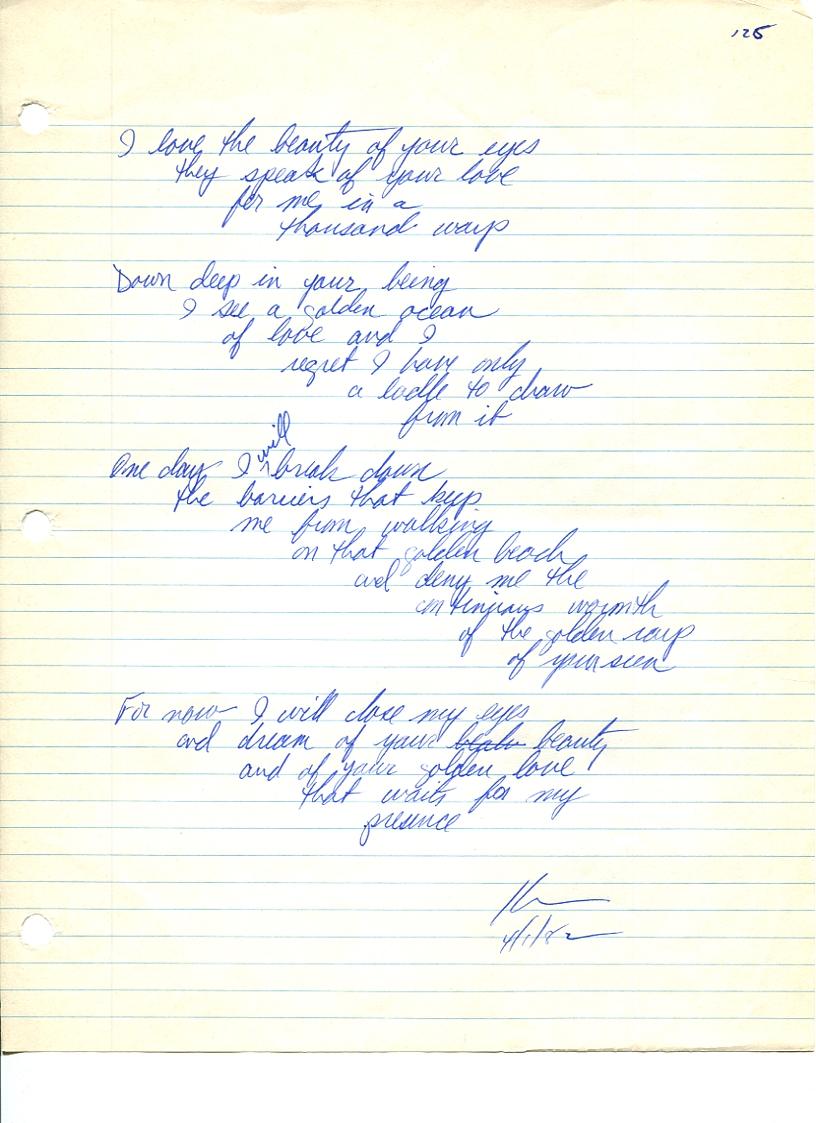 125
I love the beauty of your eyes
they speak of your love
for me in a
thousand ways
Down deep in your being
I see a golden ocean
of love and I
regret I have only
a ladle to draw
from it
One day I will break down
the barriers that keep
me from walking
on that golden beach
and deny me the
continuous warmth
of the golden rays
of your sun
For now I will close my eyes
and dream of your beauty
and of your golden love
that waits for my
presence
4/1/82